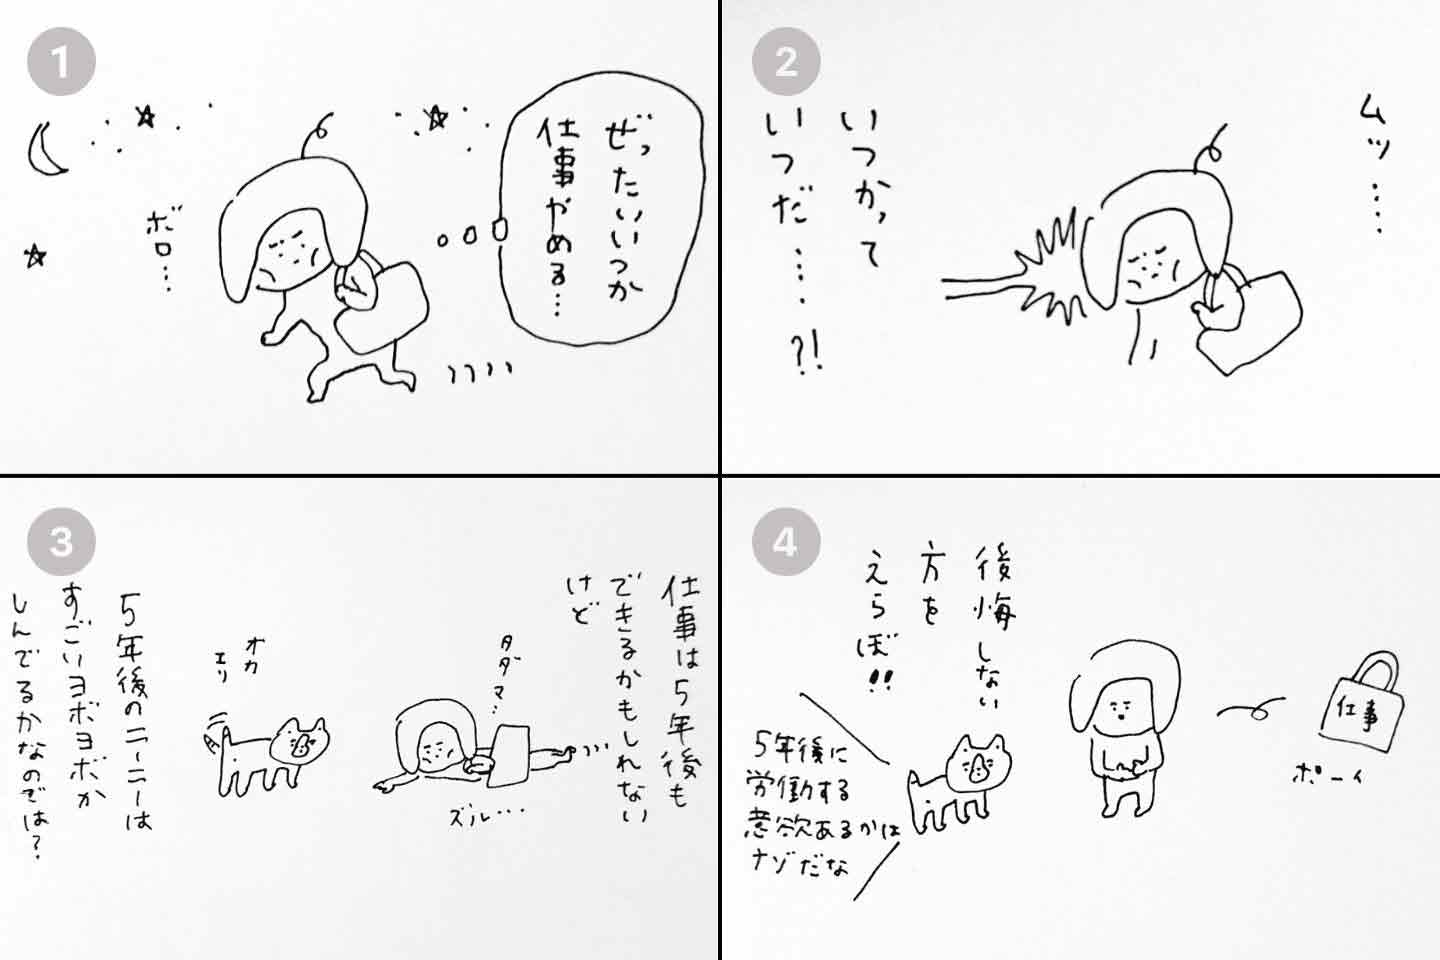 1
ぜったいいつか
仕事やめる…
ボロ…
2
ムッ……
いつかって
いつだ……?!
3
仕事は5年後も
できるかもしれない
けど
タダマ…
ズル…
オカ
エリ
5年後のニーニーは
すごいヨボヨボか
しんでるかなのでは?
4
仕事
ポーイ
後悔しない
方を
えらぼ!!
5年後に
労働する
意欲あるかは
ナゾだな